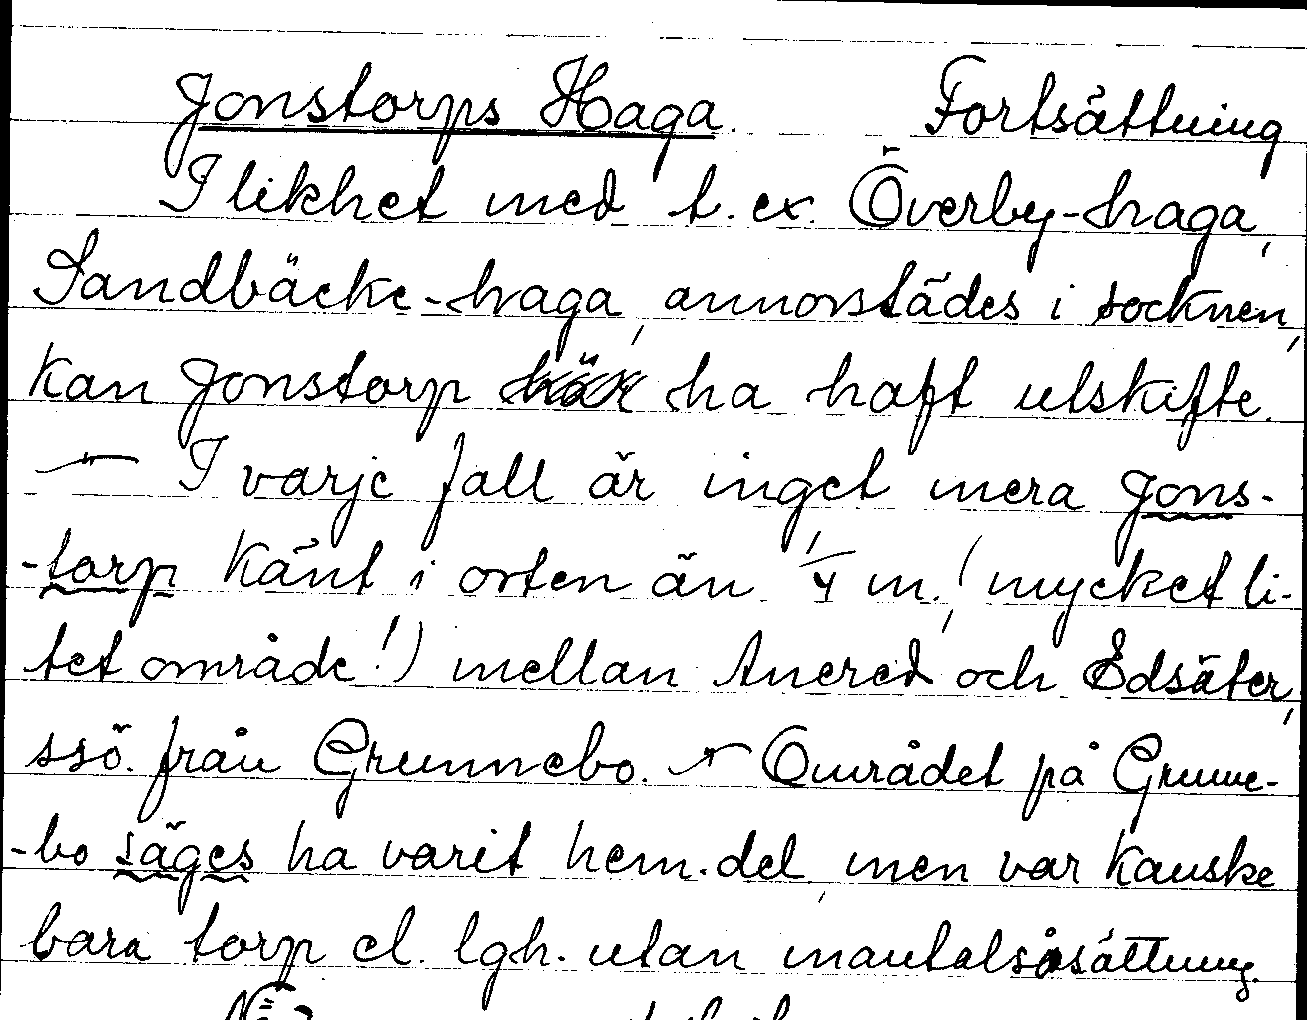 Jonstorps Haga. Fortsättning
I likhet med t. ex. Överby-haga,
Sandbäcke-haga, annorstädes i socknen,
kan Jonstorp ha haft utskifte.
— I varje fall är inget mera Jons-
-torp känt i orten än 1/4 m. (mycket li-
tet område!) mellan Anered och Edsäter,
ssö. från Grunnebo. — Området på Grunne-
-bo säges ha varit hem. del, men var kanske
bara torp el. lgh. utan mantalsåsättning.